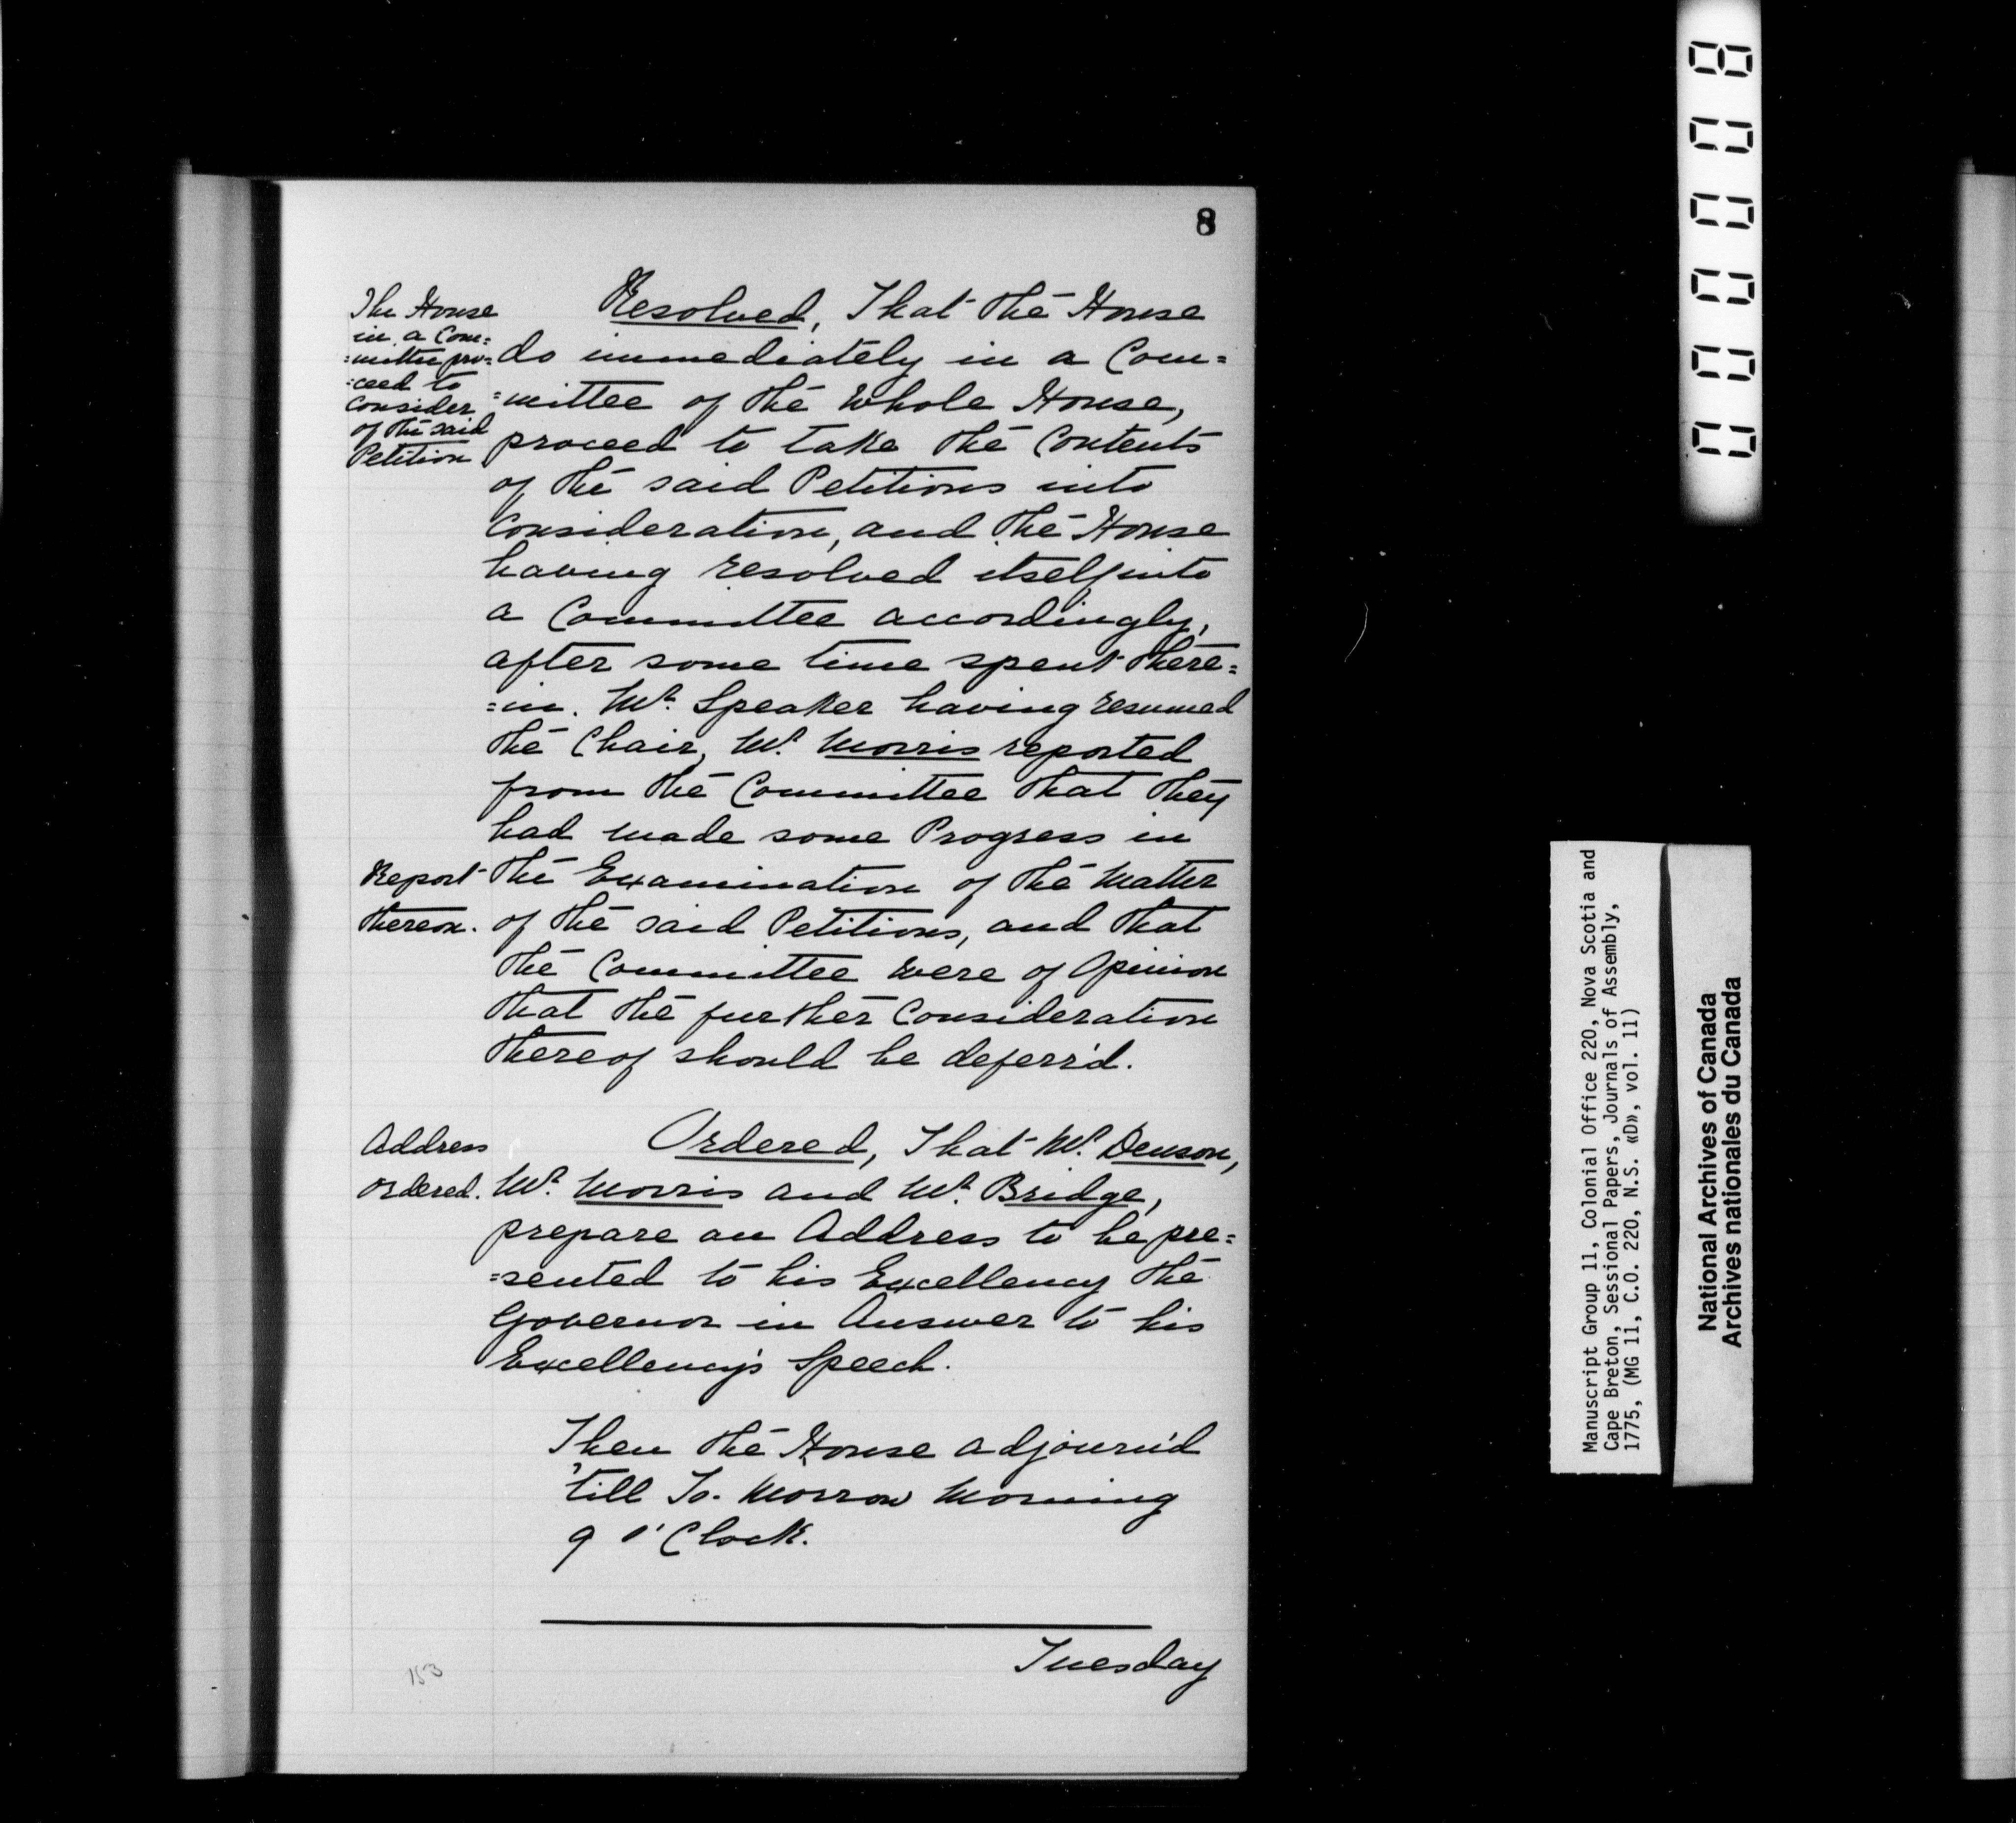 8
The House
in a Com=
=mittee pro=
=ceed to
consider
of the said
Petition
Resolved, That the House
do immediately in a Com=
=mittee of the Whole House,
proceed to take the Contents
of the said Petitions into
Consideration, and the House
having resolved itself into
a Committee accordingly,
after some time spent there=
=in. Mr. Speaker having resumed
the Chair, Mr. Morris reported
from the Committee that they
had made some Progress in
the Examination of the Matter
of the said Petitions, and that
the Committee were of Opinion
that the further Consideration
thereof should be deferr'd.
Report
thereon.
Address
ordered.
Ordered, That Mr. Denson,
Mr. Morris and Mr. Bridge,
prepare an Address to be pre=
=sented to his Excellency the
Governor in Answer to his
Excellency's Speech.
Then the House adjourn'd
'till To-Morrow Morning
9 o'Clock.
Tuesday
153
000008
Manuscript Group 11, Colonial Office 220, Nova Scotia and
Cape Breton, Sessional Papers, Journals of Assembly,
1775, (MG 11, C.O. 220, N.S. «D», vol. 11)
National Archives of Canada
Archives nationales du Canada